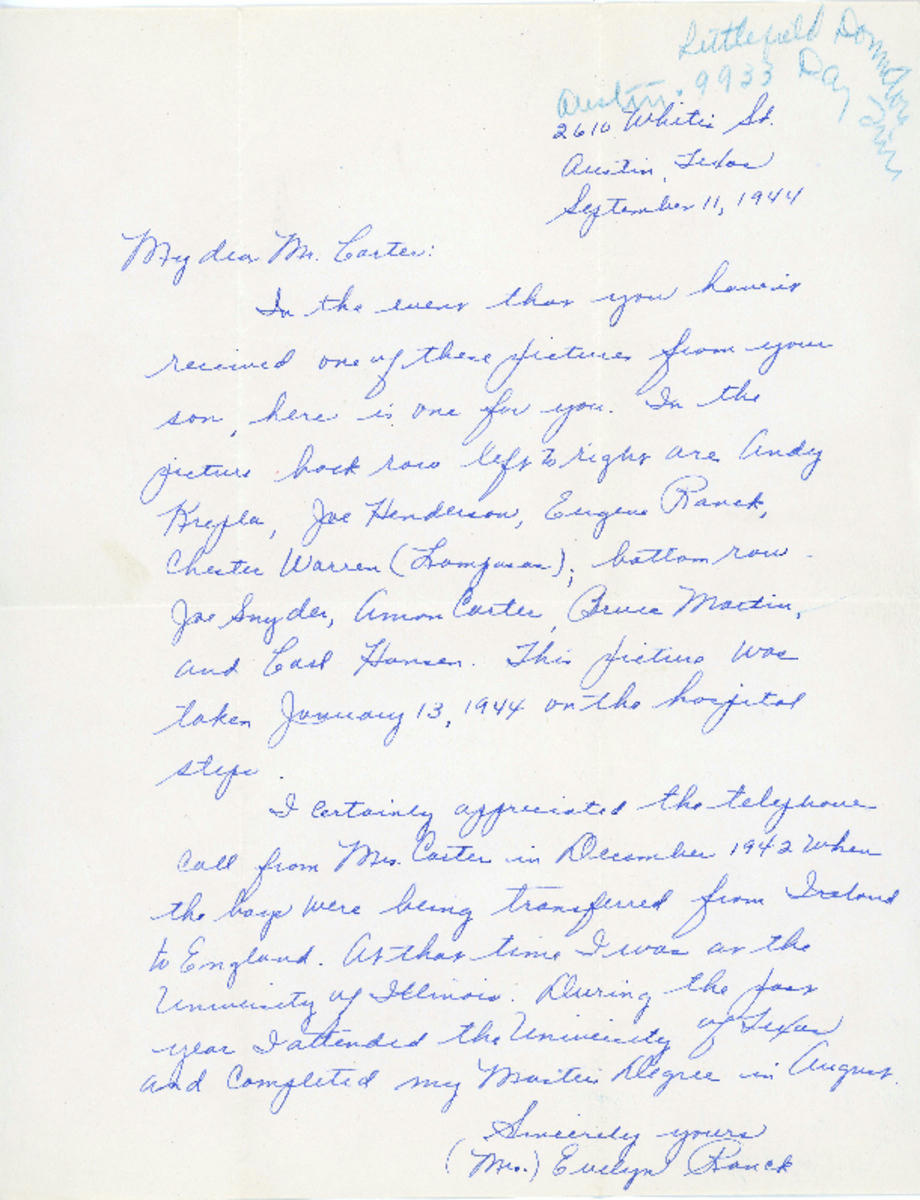 Littlefield Dormitory
Austin. 9933 Day
2610 Whitis St.
Austin, Texas
September 11, 1944
My dear Mr. Carter:
In the event that you haven't
received one of these pictures from your
son, here is one for you. In the
picture back row left to right are Andy
Krejla, Joe Henderson, Eugene Ranck,
Chester Warren (Lampasas); bottom row -
Joe Snyder, Amon Carter, Bruce Martin,
and Carl Hansen. This picture was
taken January 13, 1944 on the hospital
steps.
I certainly appreciated the telephone
call from Mrs. Carter in December 1942 when
the boys were being transferred from Ireland
to England. At that time I was at the
University of Illinois. During the past
year I attended the University of Texas
and completed my Master's Degree in August.
Sincerely yours
(Mrs.) Evelyn Ranck